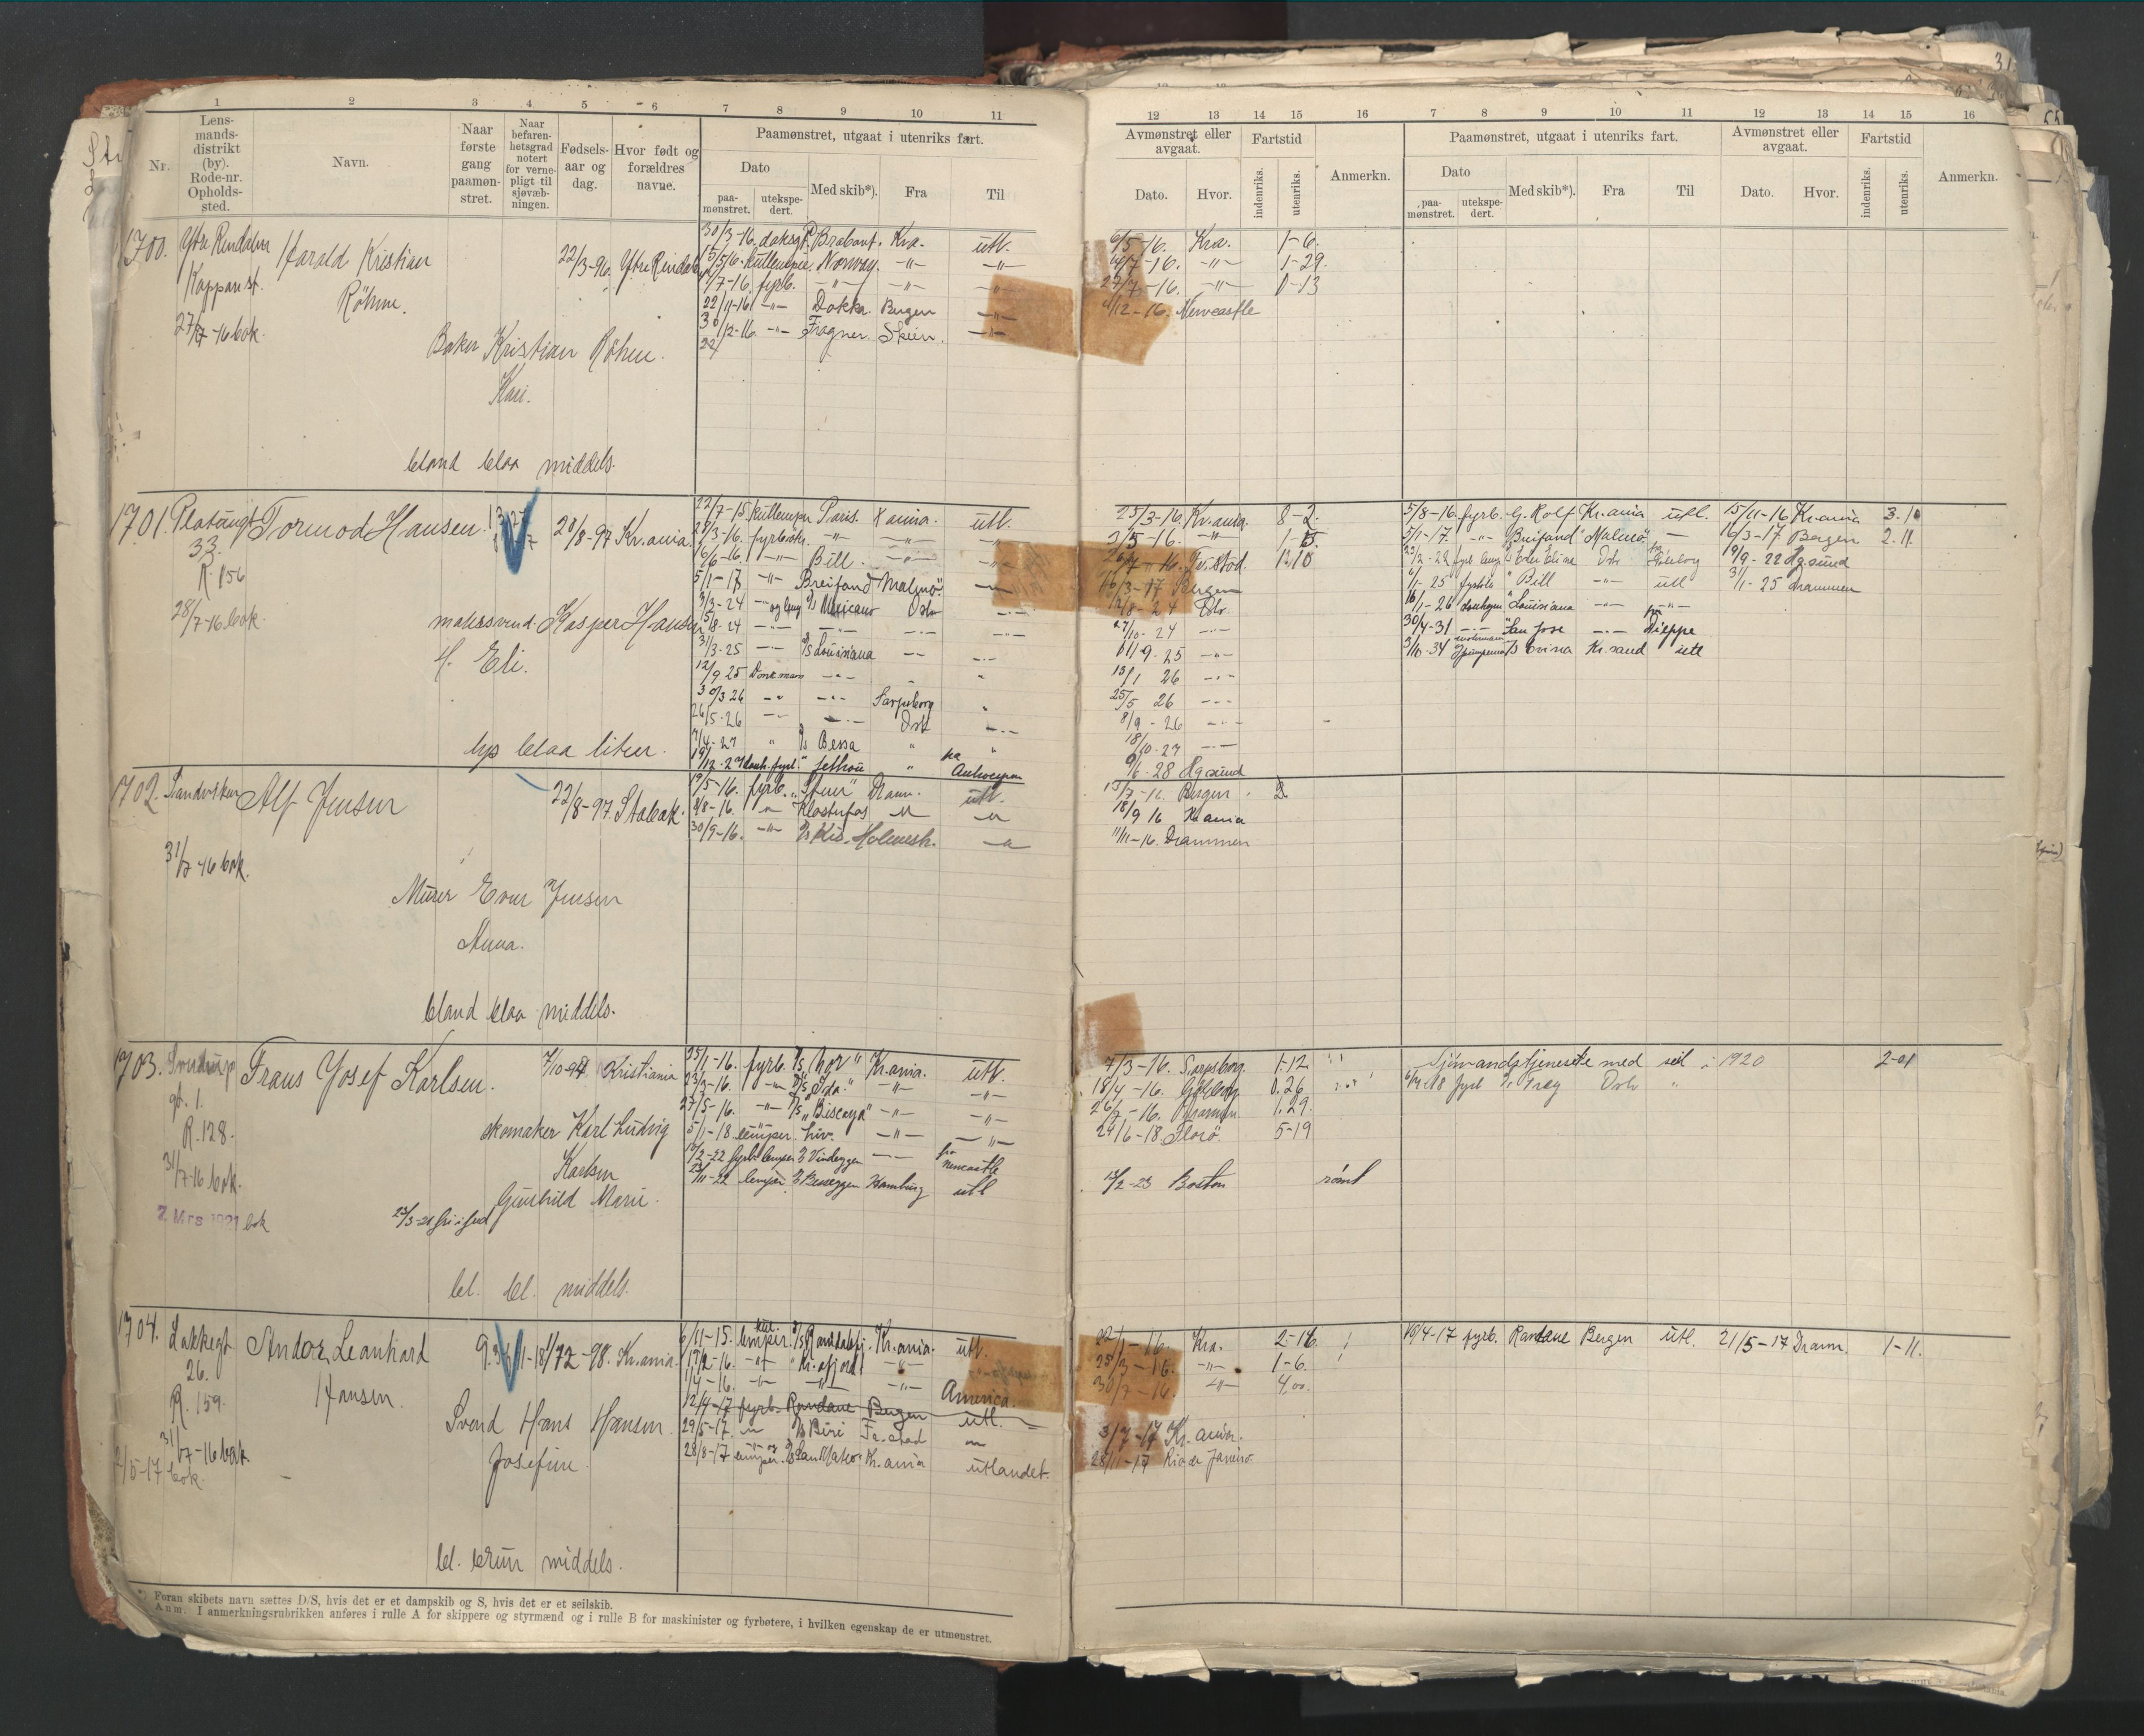 1 2 3 4 5 6 7 8 9 10 11
Nr.
Lens-
mands-
distrikt
(by).
Rode-nr.
Opholds-
sted.
Navn.
Naar
første
gang
paamøn-
stret.
Naar
befaren-
hetsgrad
notert
for verne-
pligt til
sjøvæb-
ningen.
Fødsels-
aar og
dag.
Hvor født og
forældres
navne.
Paamønstret, utgaat i utenriks fart.
Dato
paa-
mønstret.
utekspe-
dert.
Med skib*).
Fra
Til
12 13 14 15 16 7 8 9 10 11 12 13 14 15 16
Avmønstret eller
avgaat.
Dato.
Hvor.
Fartstid
indenriks.
utenriks.
Anmerkn.
Paamønstret, utgaat i utenriks fart.
Dato
paa-
mønstret.
utekspe-
dert.
Med skib*).
Fra
Til
Avmønstret eller
avgaat.
Dato.
Hvor.
Fartstid
indenriks.
utenriks.
Anmerkn.
1700. Ytre Rendalen Harald Kristian 22/3-96. Ytre Rendalen
Koppangst. Röhne.
27/7-16 bok.
Baker Kristian Röhne.
Kari.
bland blaa middels.
30/3-16. Brabant. Kra. utl. 6/5-16. Kra. 1-6.
Norway. -"- -"- -16. -"- 1-29.
/7-16. fyrb. -"- -"- -"- 27/7-16. -"- 0-13
22/11-16 -"- Dokka Bergen -"- /12-16. Newcastle
30/12-16 -"- Fragner. Skien. -"-
1701. Platougt Tormod Hansen. 20/8-97 Kr.ania.
33.
R. 156
28/7-16 bok.
malersvend. Kasper Hansen
f. Eli.
lys blaa liten.
22/7-15 kullemper Paris. Kania. utl. 25/3-16. Kr.ania. 8-2.
28/3-16. fyrbøt. -"- -"- -"- 3/5-16. -"-
6/6-16. -"- Bill. -"- -"-
5/1-17 -"- Breifond Malmö. /3-17 Bergen
3/3-24 -"- Mexicano Oslo 12/8-24 Oslo
/8-24 27/10-24
31/3-25 D/S Louisiana 11/9-25
12/9 25 Donkeman 13/1 26
30/3 26 Sarpsborg 25/5 26
26/5-26 Oslo 8/9-26
7/4-27 D/S Bessa 18/10-27
19/12-27 donk. fyrb. Jethou fra Antwerpen 9/6-28 Hgsund
5/8-16. fyrb. G. Rolf Kr.ania utl. 15/11-16 Kr.ania 3.10
5/1-17. -"- Breifond Malmö. 16/3-17 Bergen 2.11.
Oslo Göteborg 19/9-22 Hgsund
/1-25 fyrbt. " Bill -"- utl 31/1-25 Drammen
16/1-26 Louisiana -"-
30/4-31 San Jose Dieppe
3/10-34 Kr.sand utl
1702. Sandviken Alf Jensen 22/8-97. Stabæk.
31/7-16 bok.
Murer Evar Jensen
Anna.
bland blaa middels.
19/5-16. fyrb. Dram. utl. 15/7-16. Bergen.
8/8-16. Klosterfos 18/9 16 Kania
30/9-16. -"- Holmestr. 11/11-16. Drammen
1703. Frans Josef Karlsen. 7/10-94 Kristiania
gt. 1.
R. 128.
31/7-16 bok.
2 Mrs 1921 bok
skomaker Karl Ludvig
Karlsen
Gunhild Marie.
bl. bl. middels.
25/1-16. fyrb. D/S "Nor" Kr.ania. utl. 7/3-16. Sarpsborg. 1-12
23/3-16. -"- D/S "Ida." -"- -"- 18/4-16. Göteborg 0.26
27/5-16. -"- D/S "Biscaya" -"- -"- 26/7-16. Drammen. 1.29.
5/1-18 lemper. Liv. -"- -"- 24/6-18. Florö. 5-19
/2-22 fyrb. lemper D/S Vindeggen fra Newcastle
23/11-22 lemper D/S Besseggen Hamburg utl 12/2-23 Boston rømt
Sjømandstjeneste med seil i 1920 2-01
fyrb Oslo
1704. Lakkegt Andor Leonhard /12-98. Kr.ania.
26. Hansen.
R. 159.
31/7-16 bok.
2/5-17 bok.
Svend Hans Hansen
Josefine
bl. brun middels.
6/11-15. kul lemper. D/S Ramdalsfj. Kr.ania. utl. 22/1-16. Kra. 2-16.
17/2-16. Kr.afjord -"- 25/3-16. -"- 1-6.
1/4-16. -"- -"- -"- America. 30/7-16. -"- 4.00.
12/4-17 fyrb. Rondane Bergen utl.
29/5-17. D/S Biri Fr.stad 3/7-17 Kr.ania.
28/8-17 lemper. D/S San Mateo Kr.ania utlandet. 28/11-17 Rio de Janeiro.
10/4-17 fyrb. Rondane Bergen utl. 21/5-17 Dramm. 1-11.
*) Foran skibets navn sættes D/S, hvis det er et dampskib og S, hvis det er et seilskib.
Anm. I anmerkningsrubrikken anføres i rulle A for skippere og styrmænd og i rulle B for maskinister og fyrbøtere, i hvilken egenskap de er utmønstret.